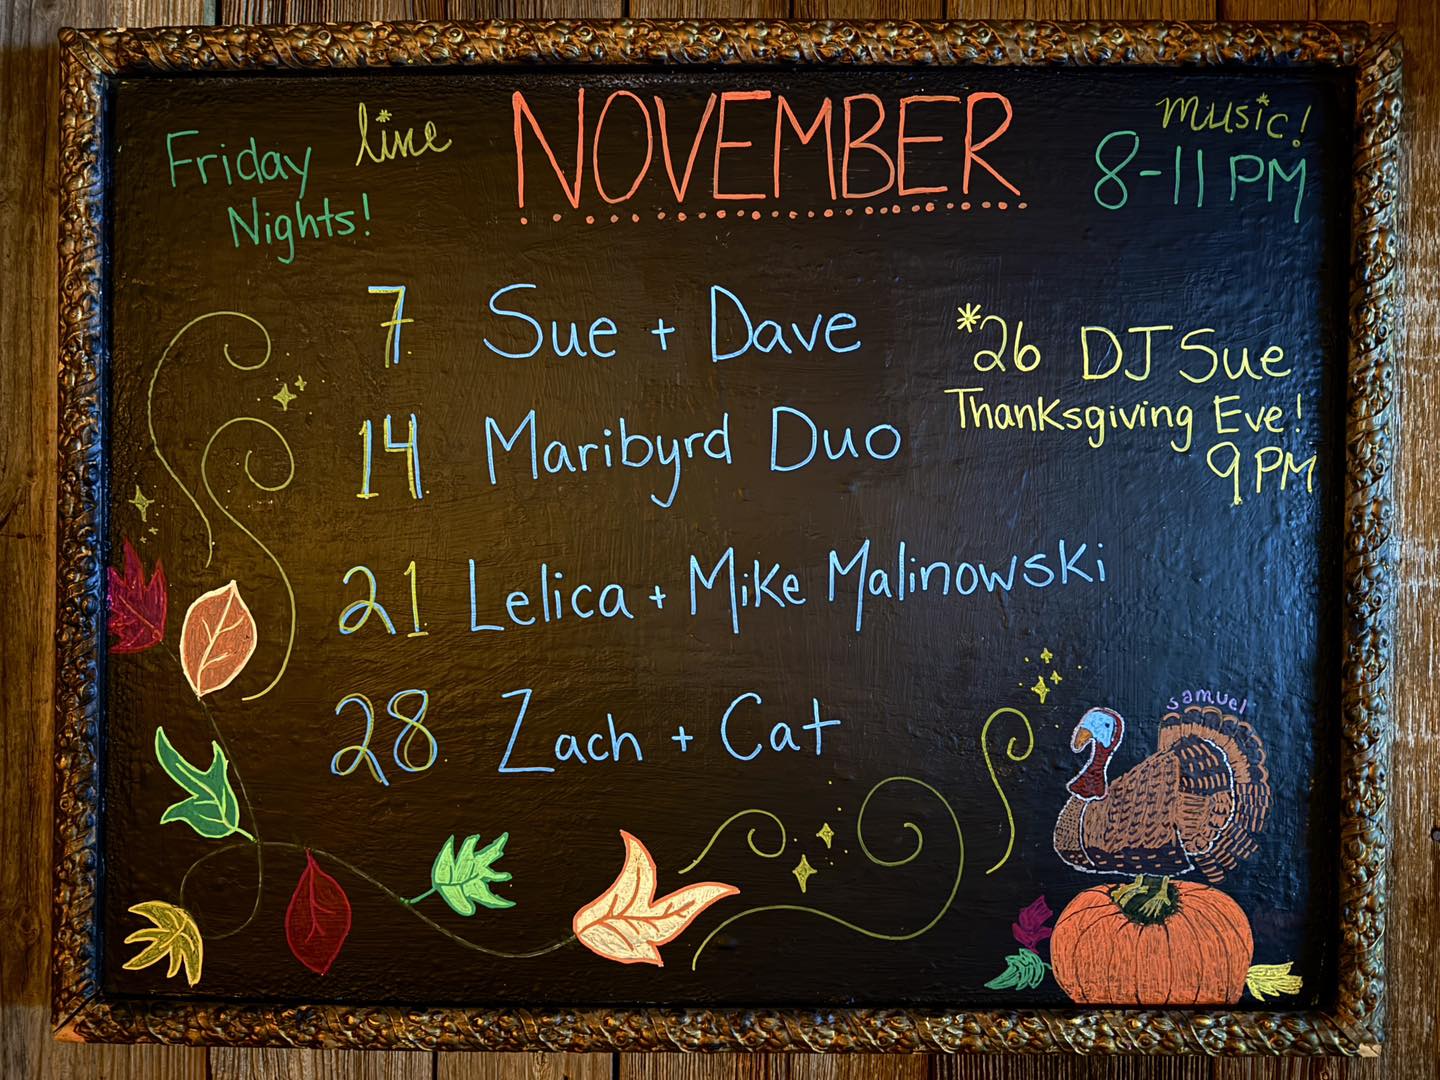 Friday
Nights!
live
NOVEMBER
music!
8-11 PM
7 Sue + Dave
14 Maribyrd Duo
21 Lelica + Mike Malinowski
28 Zach + Cat
*26 DJ Sue
Thanksgiving Eve!
9 PM
samuel